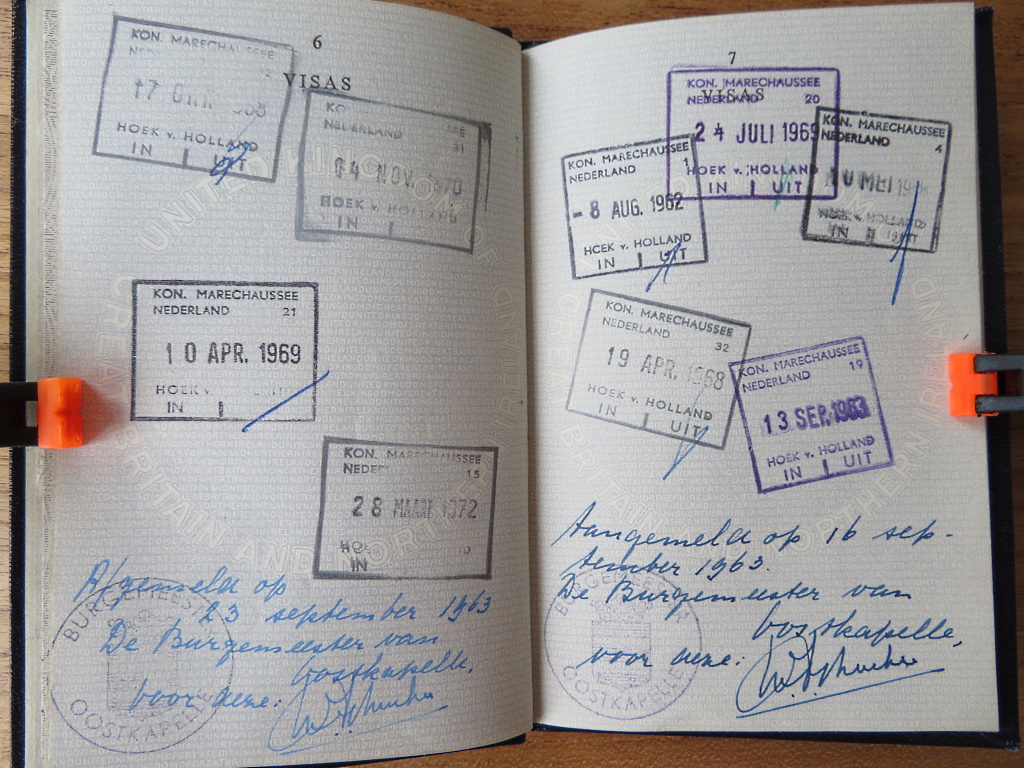 6
VISAS
KON. MARECHAUSSEE
17
HOEK v. HOLLAND
IN UIT
NEDERLAND 31
14 NOV. 1970
HOEK v. HOLLAND
IN
KON. MARECHAUSSEE
NEDERLAND 21
10 APR. 1969
HOEK v.
IN
KON. MARECHAUSSEE
15
28 MAART 1972
IN
Afgemeld op
23 september 1963
De Burgemeester van
Oostkapelle,
voor deze:
BURGEMEESTER
OOSTKAPELLE
7
VISAS
KON. MARECHAUSSEE
NEDERLAND 20
24 JULI 1969
HOEK v. HOLLAND
IN UIT
KON. MARECHAUSSEE
NEDERLAND 1
- 8 AUG. 1962
HOEK v. HOLLAND
IN UIT
KON. MARECHAUSSEE
NEDERLAND 4
MEI
HOEK v. HOLLAND
IN UIT
KON. MARECHAUSSEE
NEDERLAND 32
19 APR. 1968
HOEK v. HOLLAND
IN UIT
KON. MARECHAUSSEE
NEDERLAND 19
13 SEP. 1963
HOEK v. HOLLAND
IN UIT
Aangemeld op 16 sep-
tember 1963.
De Burgemeester van
Oostkapelle,
voor deze:
BURGEMEESTER
OOSTKAPELLE
UNITED KINGDOM OF
GREAT BRITAIN AND NORTHERN IRELAND